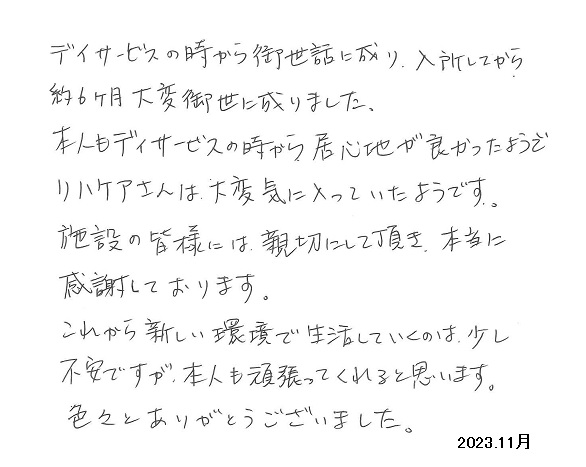 デイサービスの時から御世話に成り、入所してから
約6ケ月大変御世に成りました、
本人もディサービスの時から居心地が良かったようで
リハケアさんは、大変気に入っていたようです。
施設の皆様には、親切にして頂き、本当に
感謝しております。
これから新しい環境で生活していくのは、少し
不安ですが、本人も頑張ってくれると思います。
色々とありがとうございました。
2023.11月